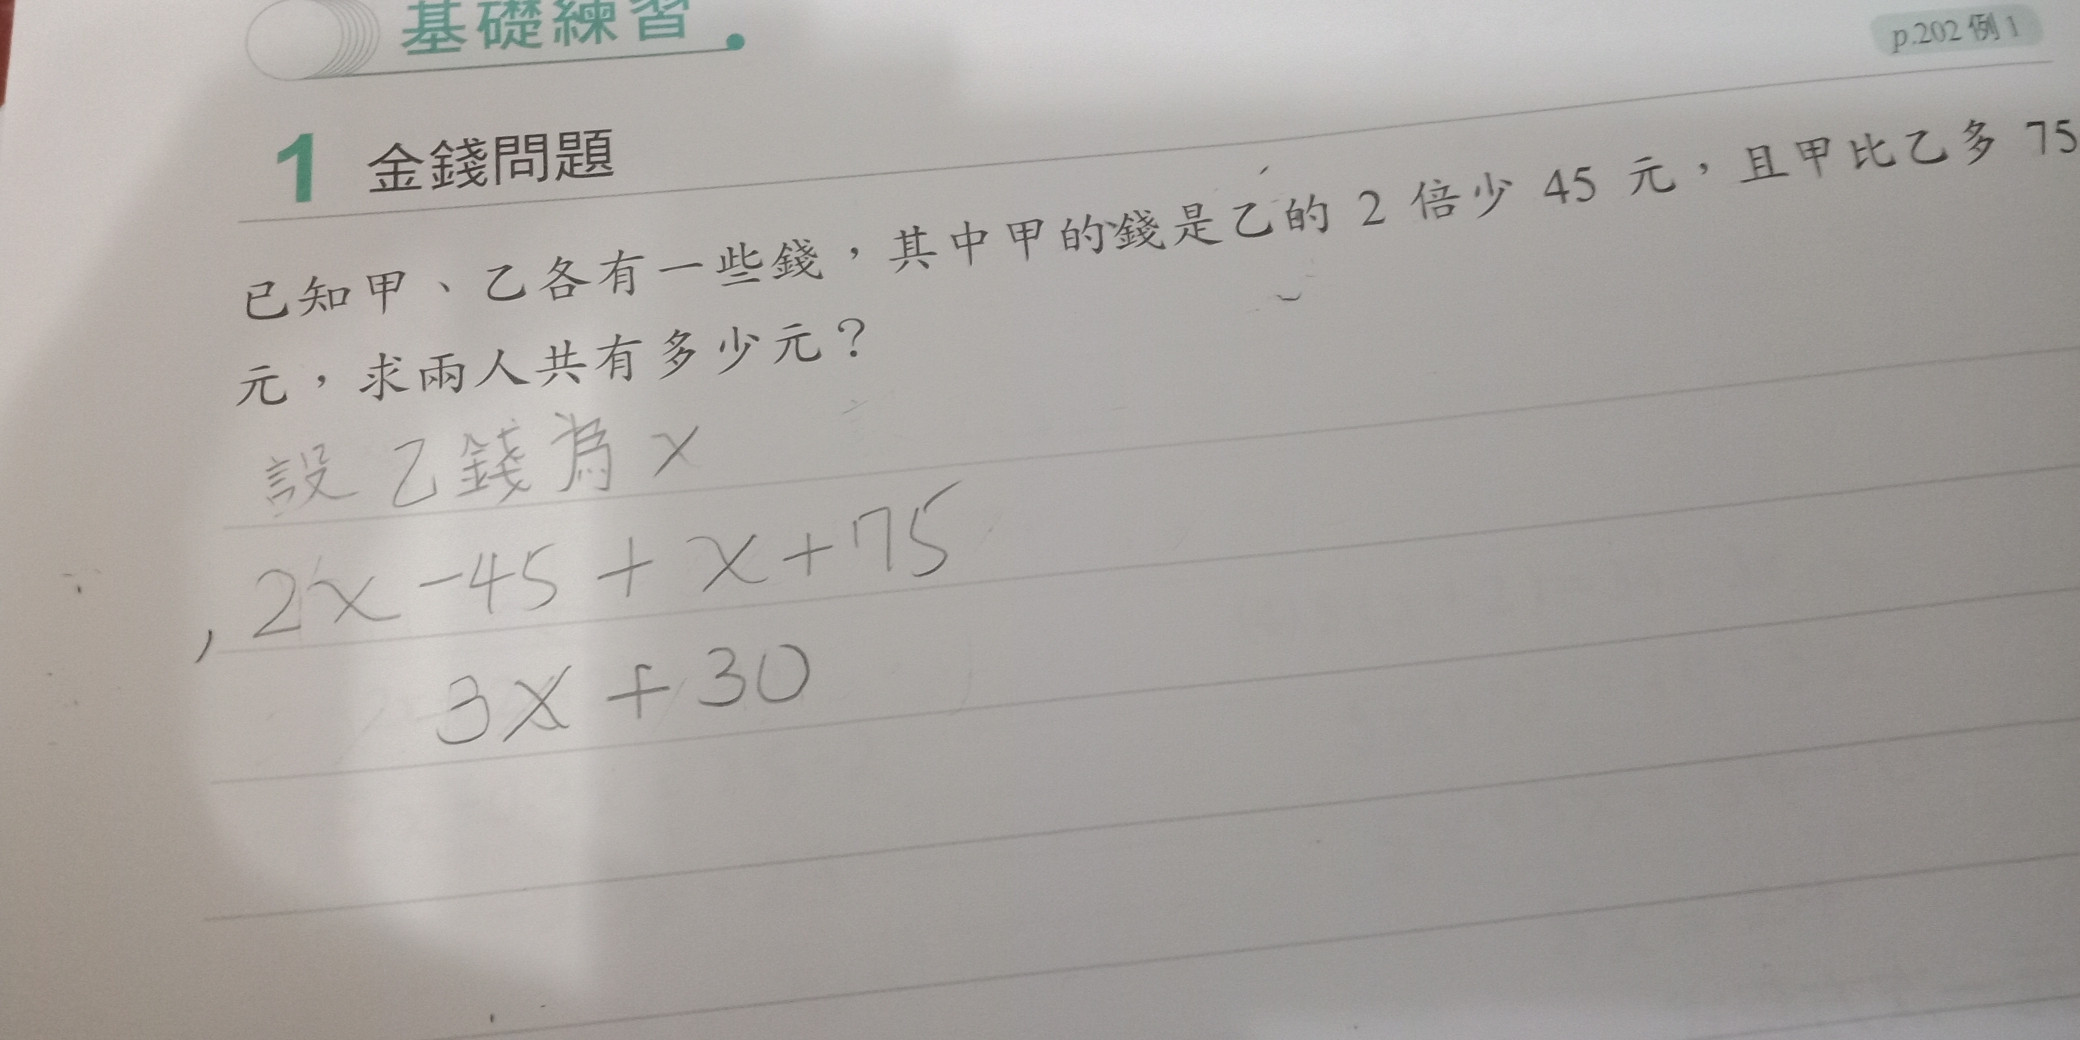 基礎練習
p.202 例 1
1 金錢問題
已知甲、乙各有一些錢，其中甲的錢是乙的 2 倍少 45 元，且甲比乙多 75
元，求兩人共有多少元？
設乙錢為x
2x-45+x+75
3x+30